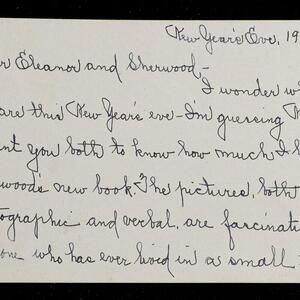 New Year's Eve, 19
r Eleanor and Sherwood -
I wonder w
are this New Year's eve - I'm guessing
nt you both to know how much I
wood's new book. The pictures, both
tographic and verbal, are fascinati
one who has ever lived in a small